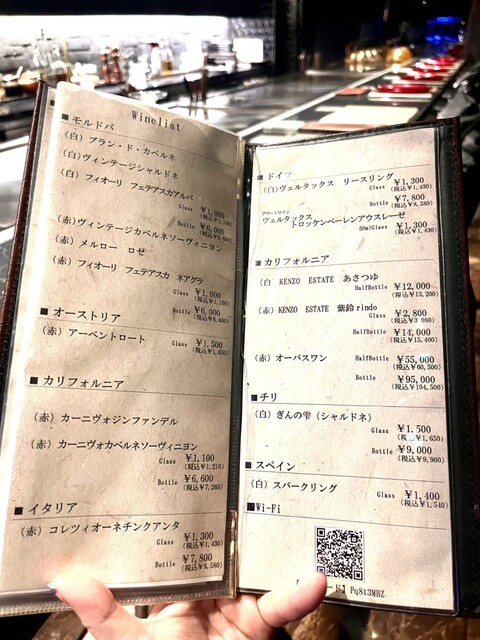 Winelist
■ モルドバ
(白) ブラン・ド・カベルネ
(白) ヴィンテージシャルドネ
(白) フィオーリ フェテアスカアルバ
Glass ¥1,000
(税込¥1,100)
Bottle ¥6,000
(税込¥6,600)
(赤) ヴィンテージカベルネソーヴィニヨン
(赤) メルロー ロゼ
(赤) フィオーリ フェテアスカ ネアグラ
Glass ¥1,000
(税込¥1,100)
Bottle ¥6,000
(税込¥6,600)
■ オーストリア
(赤) アーベントロート
Glass ¥1,500
(税込¥1,650)
■ カリフォルニア
(赤) カーニヴォジンファンデル
(赤) カーニヴォカベルネソーヴィニヨン
Glass ¥1,100
(税込¥1,210)
Bottle ¥6,600
(税込¥7,260)
■ イタリア
(赤) コレツィオーネチンクアンタ
Glass ¥1,300
(税込¥1,430)
Bottle ¥7,800
(税込¥8,580)
■ ドイツ
(白) ヴェルタックス リースリング
Glass ¥1,300
(税込¥1,430)
Bottle ¥7,800
(税込¥8,580)
デザートワイン
ヴェルタックス
トロッケンベーレンアウスレーゼ
30mlGlass ¥1,300
(税込¥1,430)
■ カリフォルニア
(白) KENZO ESTATE あさつゆ
HalfBottle ¥12,000
(税込¥13,200)
(赤) KENZO ESTATE 紫鈴rindo
Glass ¥2,800
(税込¥3,080)
HalfBottle ¥14,000
(税込¥15,400)
(赤) オーパスワン HalfBottle ¥55,000
(税込¥60,500)
Bottle ¥95,000
(税込¥104,500)
■ チリ
(白) ぎんの雫 (シャルドネ)
Glass ¥1,500
(税込¥1,650)
Bottle ¥9,000
(税込¥9,900)
■ スペイン
(白) スパークリング Glass ¥1,400
(税込¥1,540)
■ Wi-Fi
ード】Pq8t3MBZ